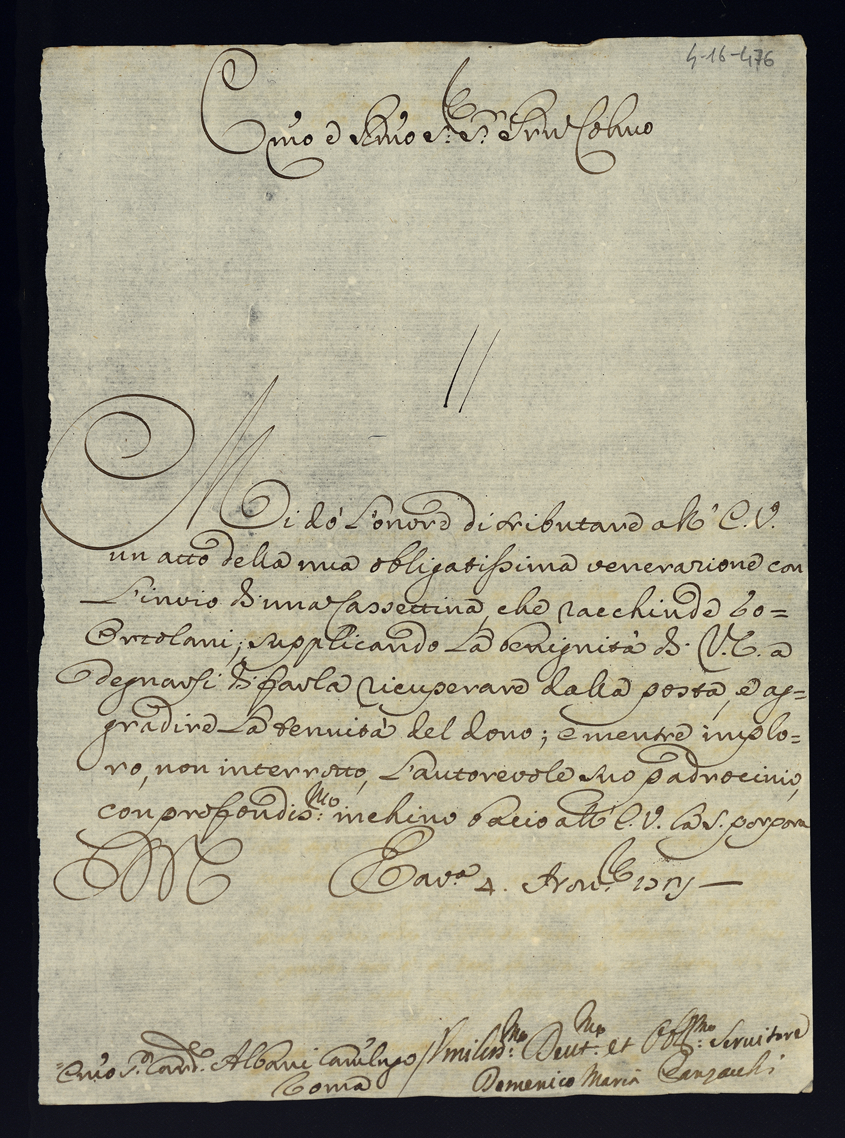 4-16-476
Em̃o e Rm̃o Sig.r P.rõn Colmo
Mi dò l'onore di tributare all' E. V.
un atto della mia obligatissima venerazione con
L'invio di una Cassettina, che racchiude
Ortolani; supplicando La benignità di V. E. a
degnarsi di farla ricuperare dalla posta, e ag=
gradire La tenuità del dono; e mentre implo=
ro, non interrotto, L'autorevole suo padrocinio,
con profondis.mo inchino bacio all' E. V. la S. porpora
4.
Em̃o Sig. Card. Albani
Roma
Umiliss.mo Devt.mo et Obl.mo Servitore
Domenico Maria